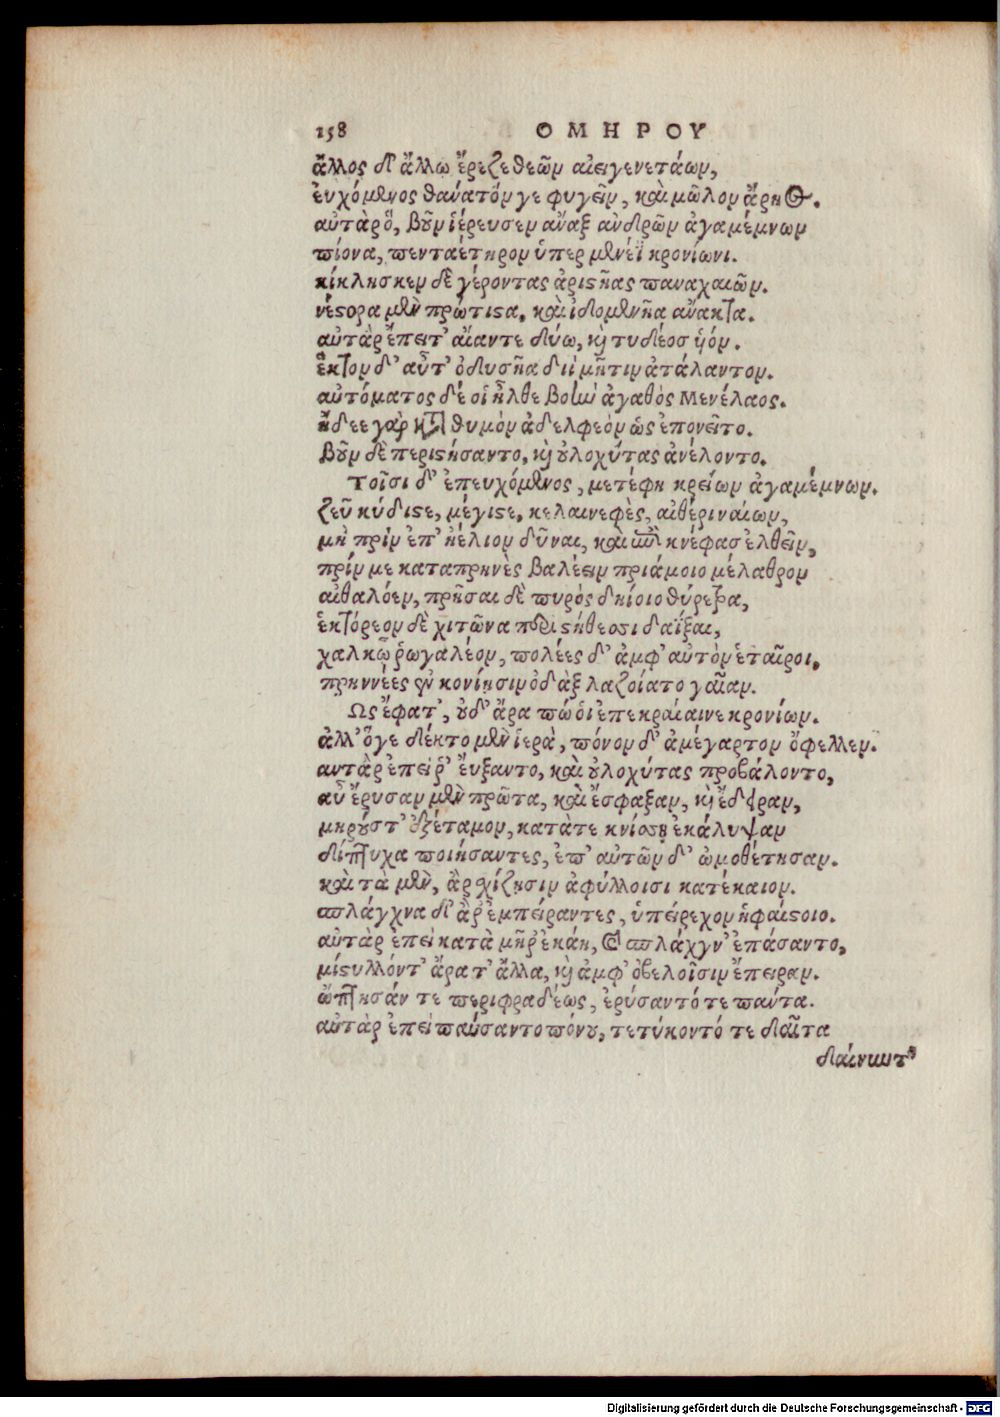 158 ΟΜΗΡΟΥ
ἄλλος δ' ἄλλῳ ἔρεζε θεῶν αἰειγενετάων,
ἐυχόμενος θάνατόν γε φυγεῖν, καὶ μῶλον ἄρηος.
αὐτὰρ ὅ, βοῦν ἱέρευσεν ἄναξ ἀνδρῶν ἀγαμέμνων
πίονα, πενταέτηρον ὑπερμενέϊ κρονίωνι.
κίκλησκεν δὲ γέροντας ἀριστῆας παναχαιῶν.
νέστορα μὲν πρώτιστα, καὶ ἰδομενῆα ἄνακτα.
αὐτὰρ ἔπειτ' αἴαντε δύω, καὶ τυδέος υἱόν.
ἕκτον δ' αὖτ' ὀδυσῆα διὶ μῆτιν ἀτάλαντον.
αὐτόματος δέ οἱ ἦλθε βοὴν ἀγαθὸς Μενέλαος.
ᾔδεε γὰρ κατὰ θυμὸν ἀδελφεὸν ὡς ἐπονεῖτο.
βοῦν δὲ περιστήσαντο, καὶ οὐλοχύτας ἀνέλοντο.
Τοῖσι δ' ἐπευχόμενος, μετέφη κρείων ἀγαμέμνων.
ζεῦ κύδιστε, μέγιστε, κελαινεφὲς, αἰθέρι ναίων,
μὴ πρὶν ἐπ' ἠέλιον δῦναι, καὶ ἐπὶ κνέφας ἐλθεῖν,
πρίν με καταπρηνὲς βαλέειν πριάμοιο μέλαθρον
αἰθαλόεν, πρῆσαι δὲ πυρὸς δηίοιο θύρετρα,
ἑκτόρεον δὲ χιτῶνα περὶ στήθεσσι δαΐξαι,
χαλκῷ ῥωγαλέον, πολέες δ' ἀμφ' αὐτὸν ἑταῖροι,
πρηννέες ἐν κονίῃσιν ὀδὰξ λαζοίατο γαῖαν.
Ως ἔφατ', οὐδ' ἄρα πώ οἱ ἐπεκραίαινε κρονίων.
ἀλλ' ὅγε δέκτο μὲν ἱερὰ, πόνον δ' ἀμέγαρτον ὄφελλεν.
αυτὰρ ἐπεί ῥ' ἔυξαντο, καὶ οὐλοχύτας προβάλοντο,
αὖ ἔρυσαν μὲν πρῶτα, καὶ ἔσφαξαν, καὶ ἔδειραν,
μηρούς τ' ἐξέταμον, κατά τε κνίσσῃ ἐκάλυψαν
δίπτυχα ποιήσαντες, ἐπ' αὐτῶν δ' ὠμοθέτησαν.
καὶ τὰ μὲν, ἂρ χίζησιν ἀφύλλοισι κατέκαιον.
σπλάγχνα δ' ἂρ ἐμπείραντες, ὑπείρεχον ἡφαίστοιο.
αὐτὰρ ἐπεὶ κατὰ μῆρ' ἐκάη, καὶ σπλάχγν' ἐπάσαντο,
μίστυλλόντ' ἄρα τ' ἄλλα, καὶ ἀμφ' ὀβελοῖσιν ἔπειραν.
ὤπτησάν τε περιφραδέως, ἐρύσαντό τε πάντα.
αὐτὰρ ἐπεὶ παύσαντο πόνου, τετύκοντό τε δαῖτα
δαίνυντ'
Digitalisierung gefördert durch die Deutsche Forschungsgemeinschaft - DFG